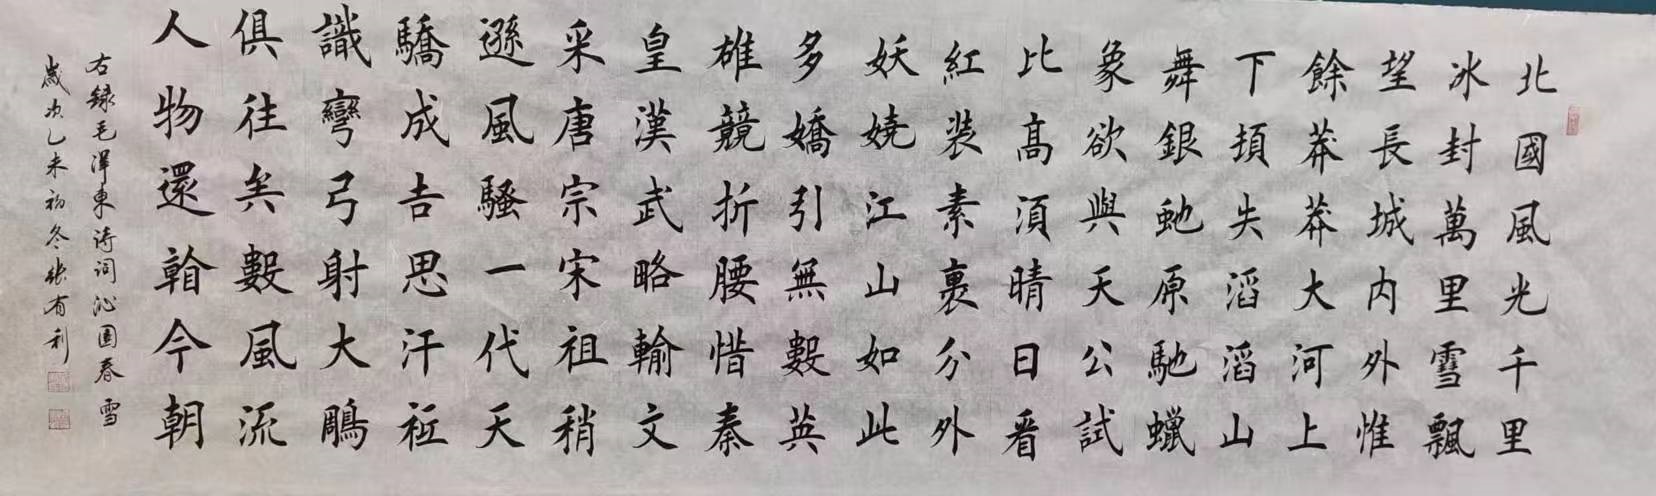 北國風光千里
冰封萬里雪飄
望長城内外惟
餘莽莽大河上
下頓失滔滔山
舞銀虵原馳蠟
象欲與天公試
比髙須晴日看
紅装素裹分外
妖嬈江山如此
多嬌引無數英
雄競折腰惜秦
皇漢武略輸文
采唐宗宋祖稍
遜風騷一代天
驕成吉思汗祗
識彎弓射大鵰
俱往矣數風流
人物還看今朝
右録毛澤東诗词沁園春雪
歲次乙未初冬張有利